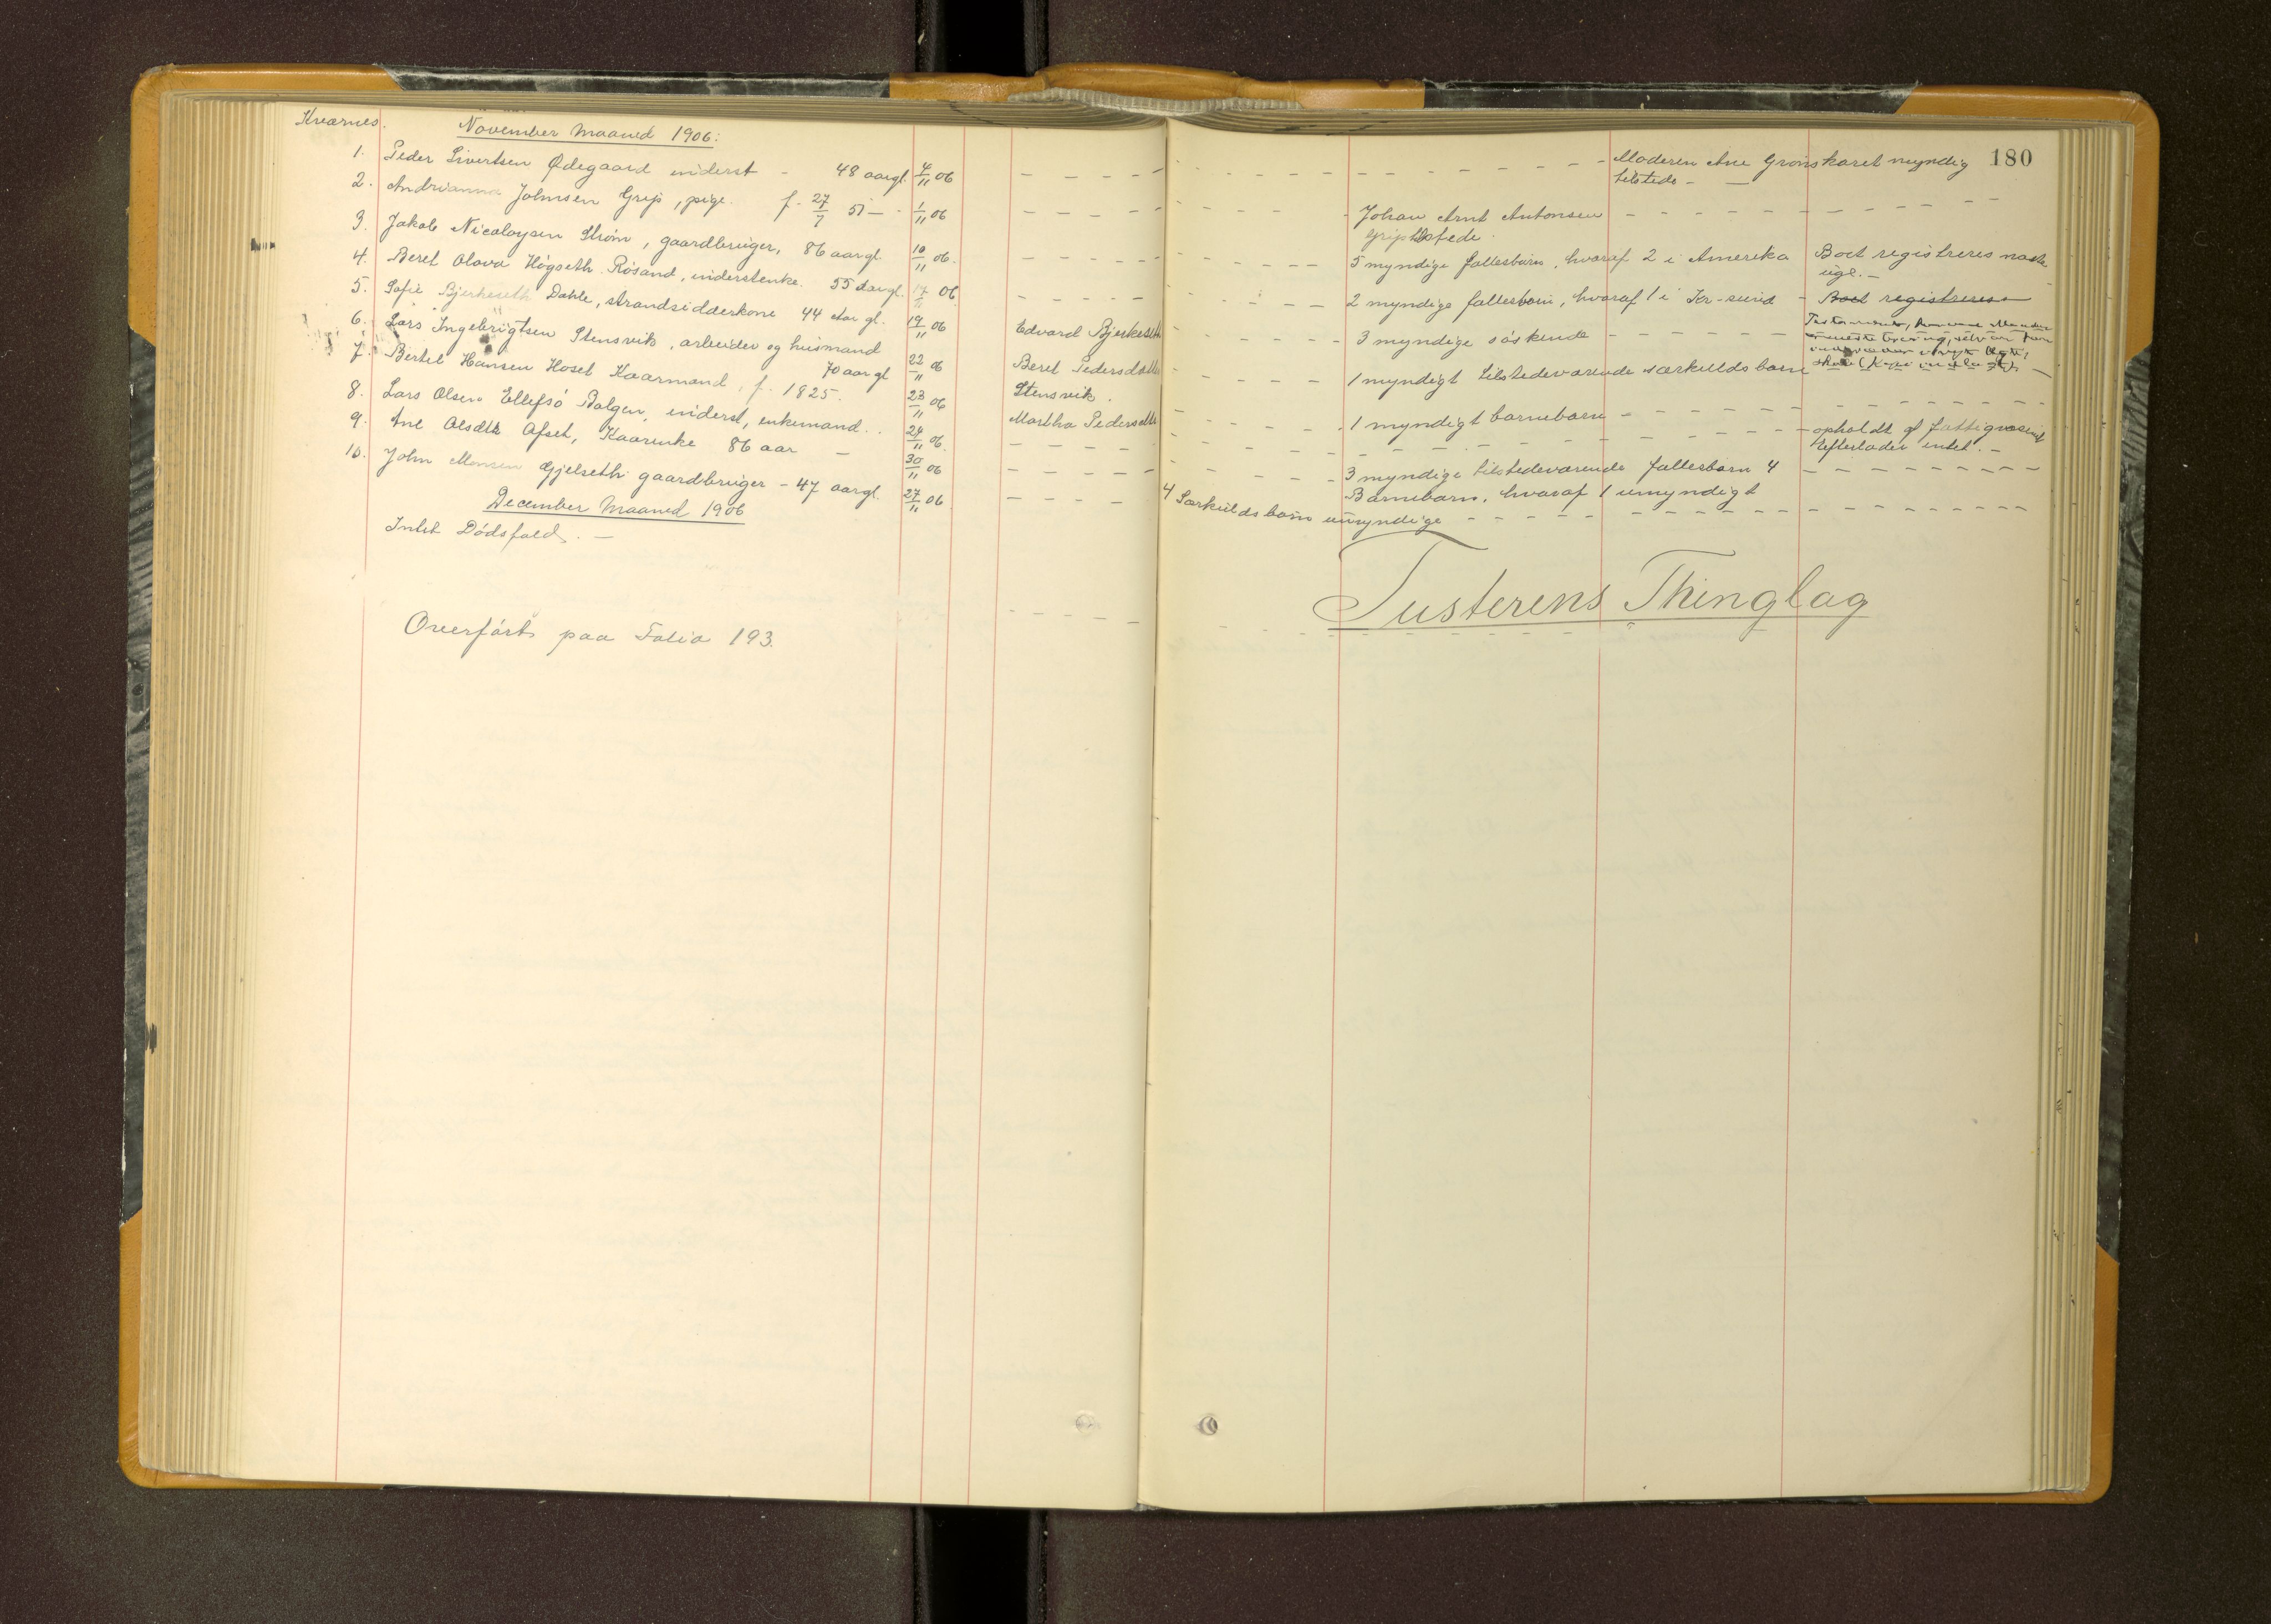 Kvernes.
November Maaned 1906:
180
1. Peder Sivertsen Ødegaard inderst - 48 aar gl. 4/11 06 - Moderen Ane Grønskaret myndig
tilstede -
2. Andrianna Johnsen Grip, pige. f. 27/7 51 - 1/11 06 Johan Arnt Antonsen
Grip
3. Jakob Nicolaysen Strøm, gaardbruger, 86 aar gl. 10/11 06. 5 myndige fællesbørn, hvoraf 2 i Amerika Boet registreres
4. Beret Olava Høgseth Røsand, inderstenke. 55 aar gl. 14/11 06 2 myndige fællesbørn, hvoraf 1 i Kr-sund - Boet registreres
5. Sofie Bjerkeseth Dahle, strandsidderkone 44 aar gl. 19/11 06 Edvard Bjerkeseth 3 myndige søskende
6. Lars Ingebrigtsen Stensvik, arbeider og husmand
70 aar gl 22/11 06 Beret Pedersdatter
Stensvik. 1 myndigt tilstedeværende særkuldsbarn
7. Bertel Hansen Hoset Kaarmand, f. 1825. 23/11 06 Martha Pedersdatter 1 myndigt barnebarn
8. Lars Olsen Ellefsø Bolgen, inderst, enkemand. 24/11 06. opholdt af fattigvæsenet
Efterlader intet. -
9. Ane Olsdtr. Ofset, Kaarenke 86 aar - 30/11 06 3 myndige tilstedeværende fællesbørn 4
Barnebarn, hvoraf 1 umyndigt
10. John Monsen Gjelseth gaardbruger - 47 aar gl. 27/11 06 4 Særkuldsbørn umyndige
December Maaned 1906
Intet Dødsfald. -
Tusterens Thinglag
Overført paa Folio 193.